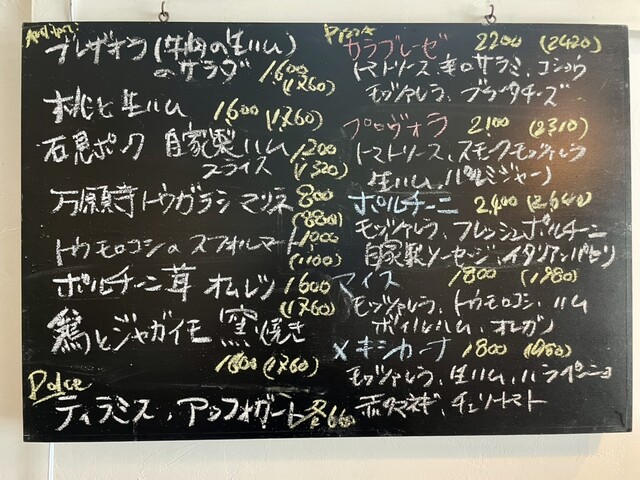 Antipasti
ブレザオラ(牛肉の生ハム)
のサラダ 1600
(1760)
桃と生ハム 1600 (1760)
石見ポーク 自家製ハム 1200
スライス (1320)
万願寺トウガラシ マリネ 800
(880)
トウモロコシのスフォルマート 1000
(1100)
ポルチーニ茸 オムレツ 1600
(1760)
鶏とジャガイモ 窯焼き
1600 (1760)
Dolce
ティラミス、アッフォガート 各660
Pizza
カラブレーゼ 2200 (2420)
トマトソース、辛口サラミ、コショウ
モッツァレラ、ブラータチーズ
プロヴォラ 2100 (2310)
トマトソース、スモークモッツァレラ
生ハム、パルミジャーノ
ポルチーニ 2400 (2640)
モッツァレラ、フレッシュポルチーニ
自家製ソーセージ、イタリアンパセリ
マイス 1800 (1980)
モッツァレラ、トウモロコシ、ハム
ボイルハム、オレガノ
メキシカーナ 1800 (1980)
モッツァレラ、生ハム、ハラペーニョ
赤タマネギ、チェリートマト